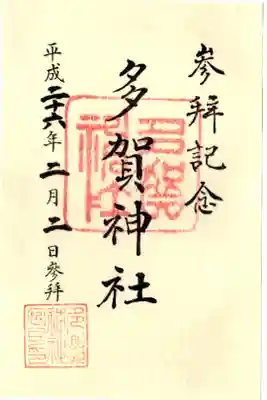 参拝記念
多賀神社
平成二十六年二月二日参拝